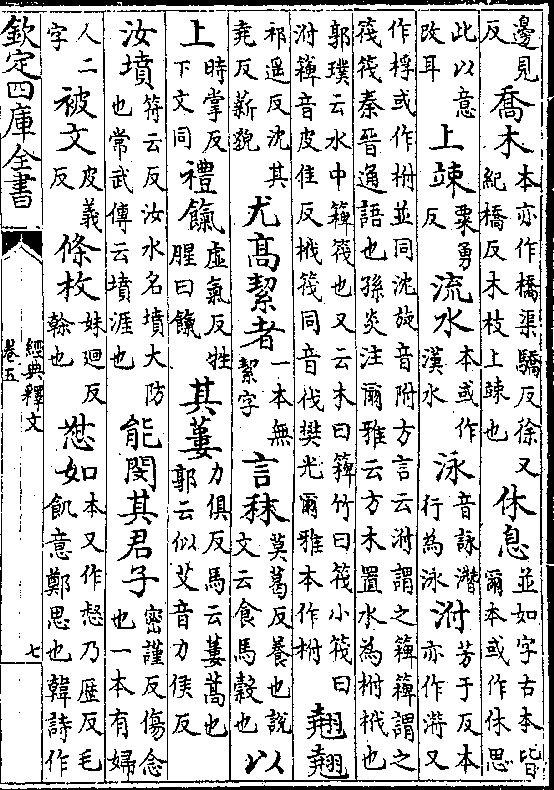 邊見反喬木本亦作橋渠驕反徐又紀橋反木枝上竦也休息並如字古本皆爾本或作休思
此以意改耳上竦粟勇反流水本或作漢水泳音詠潛行為泳泭芳于反本亦作又
作桴或作柎並同沈旋音附方言云泭謂之簰簰謂之筏筏秦晉通語也孫炎注爾雅云方木置水為柎栰也
郭璞云水中簰筏也又云木曰簰竹曰筏小筏曰泭簰音皮佳反栰筏同音伐樊光爾雅本作柎翹翹
祁遥反沈其堯反薪貌尤高絜者一本無絜字言秣莫葛反養也說文云食馬穀也以
上時掌反下文同禮餼虛氣反牲腥曰餼其蔞力俱反馬云蔞蒿也郭云似艾音力侯反
汝墳符云反汝水名墳大防也常武傳云墳涯也能閔其君子密謹反傷念也一本有婦
人二字被文皮義反條枚妹廻反榦也惄如本又作惄乃歷反毛飢意鄭思也韓詩作
欽定四庫全書
經典釋文
卷五
七